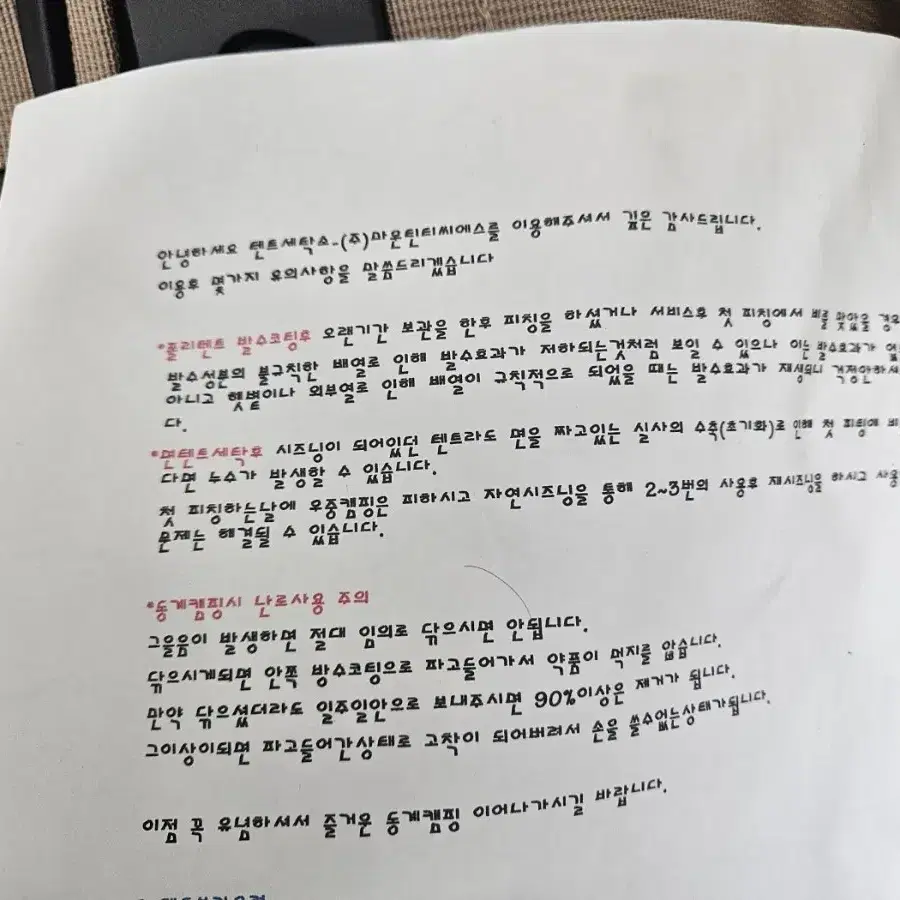 안녕하세요 텐트세탁소-(주)마운틴티씨에스를 이용해주셔서 깊은 감사드립니다.
이용후 몇가지 유의사항을 말씀드리겠습니다
*폴리텐트 발수코팅후 오랜기간 보관을 한후 피칭을 하셨거나 서비스후 첫 피칭에서 비를 맞았을 경우
발수성분의 불규칙한 배열로 인해 발수효과가 저하되는것처럼 보일 수 있으나 이는 발수효과가
아니고 햇볕이나 외부열로 인해 배열이 규칙적으로 되었을 때는 발수효과가 재생되니 걱정안하셔
다.
*면텐트세탁후 시즈닝이 되어있던 텐트라도 면을 짜고있는 실사의 수축(초기화)로 인해 첫 피칭에 비
다면 누수가 발생할 수 있습니다.
첫 피칭하는날에 우중캠핑은 피하시고 자연시즈닝을 통해 2~3번의 사용후 재시즈닝을 하시고
문제는 해결될 수 있습니다.
*동계캠핑시 난로사용 주의
그을음이 발생하면 절대 임의로 닦으시면 안됩니다.
닦으시게되면 안쪽 방수코팅으로 파고들어가서 약품이 먹지를 않습니다.
만약 닦으셨더라도 일주일안으로 보내주시면 90%이상은 제거가 됩니다.
그이상이되면 파고들어간상태로 고착이 되어버려서 손을 쓸수없는상태가됩니다.
이점 꼭 유념하셔서 즐거운 동계캠핑 이어나가시길 바랍니다.